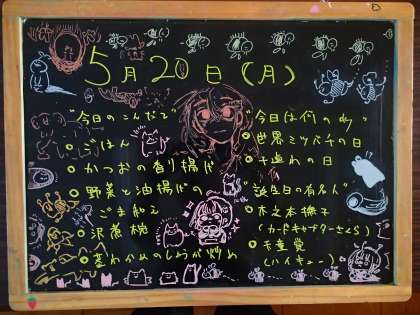 5月20日(月)
"今日のこんだて"
ごはん
かつおの香り揚げ
野菜と油揚げの
ごま和え
沢煮椀
茎わかめのしょうが炒め
今日は何のday"
世界ミツバチの日
"誕生日の有名人"
木之本撫子
(カードキャプターさくら)
天童覚
(ハイキュー!!)